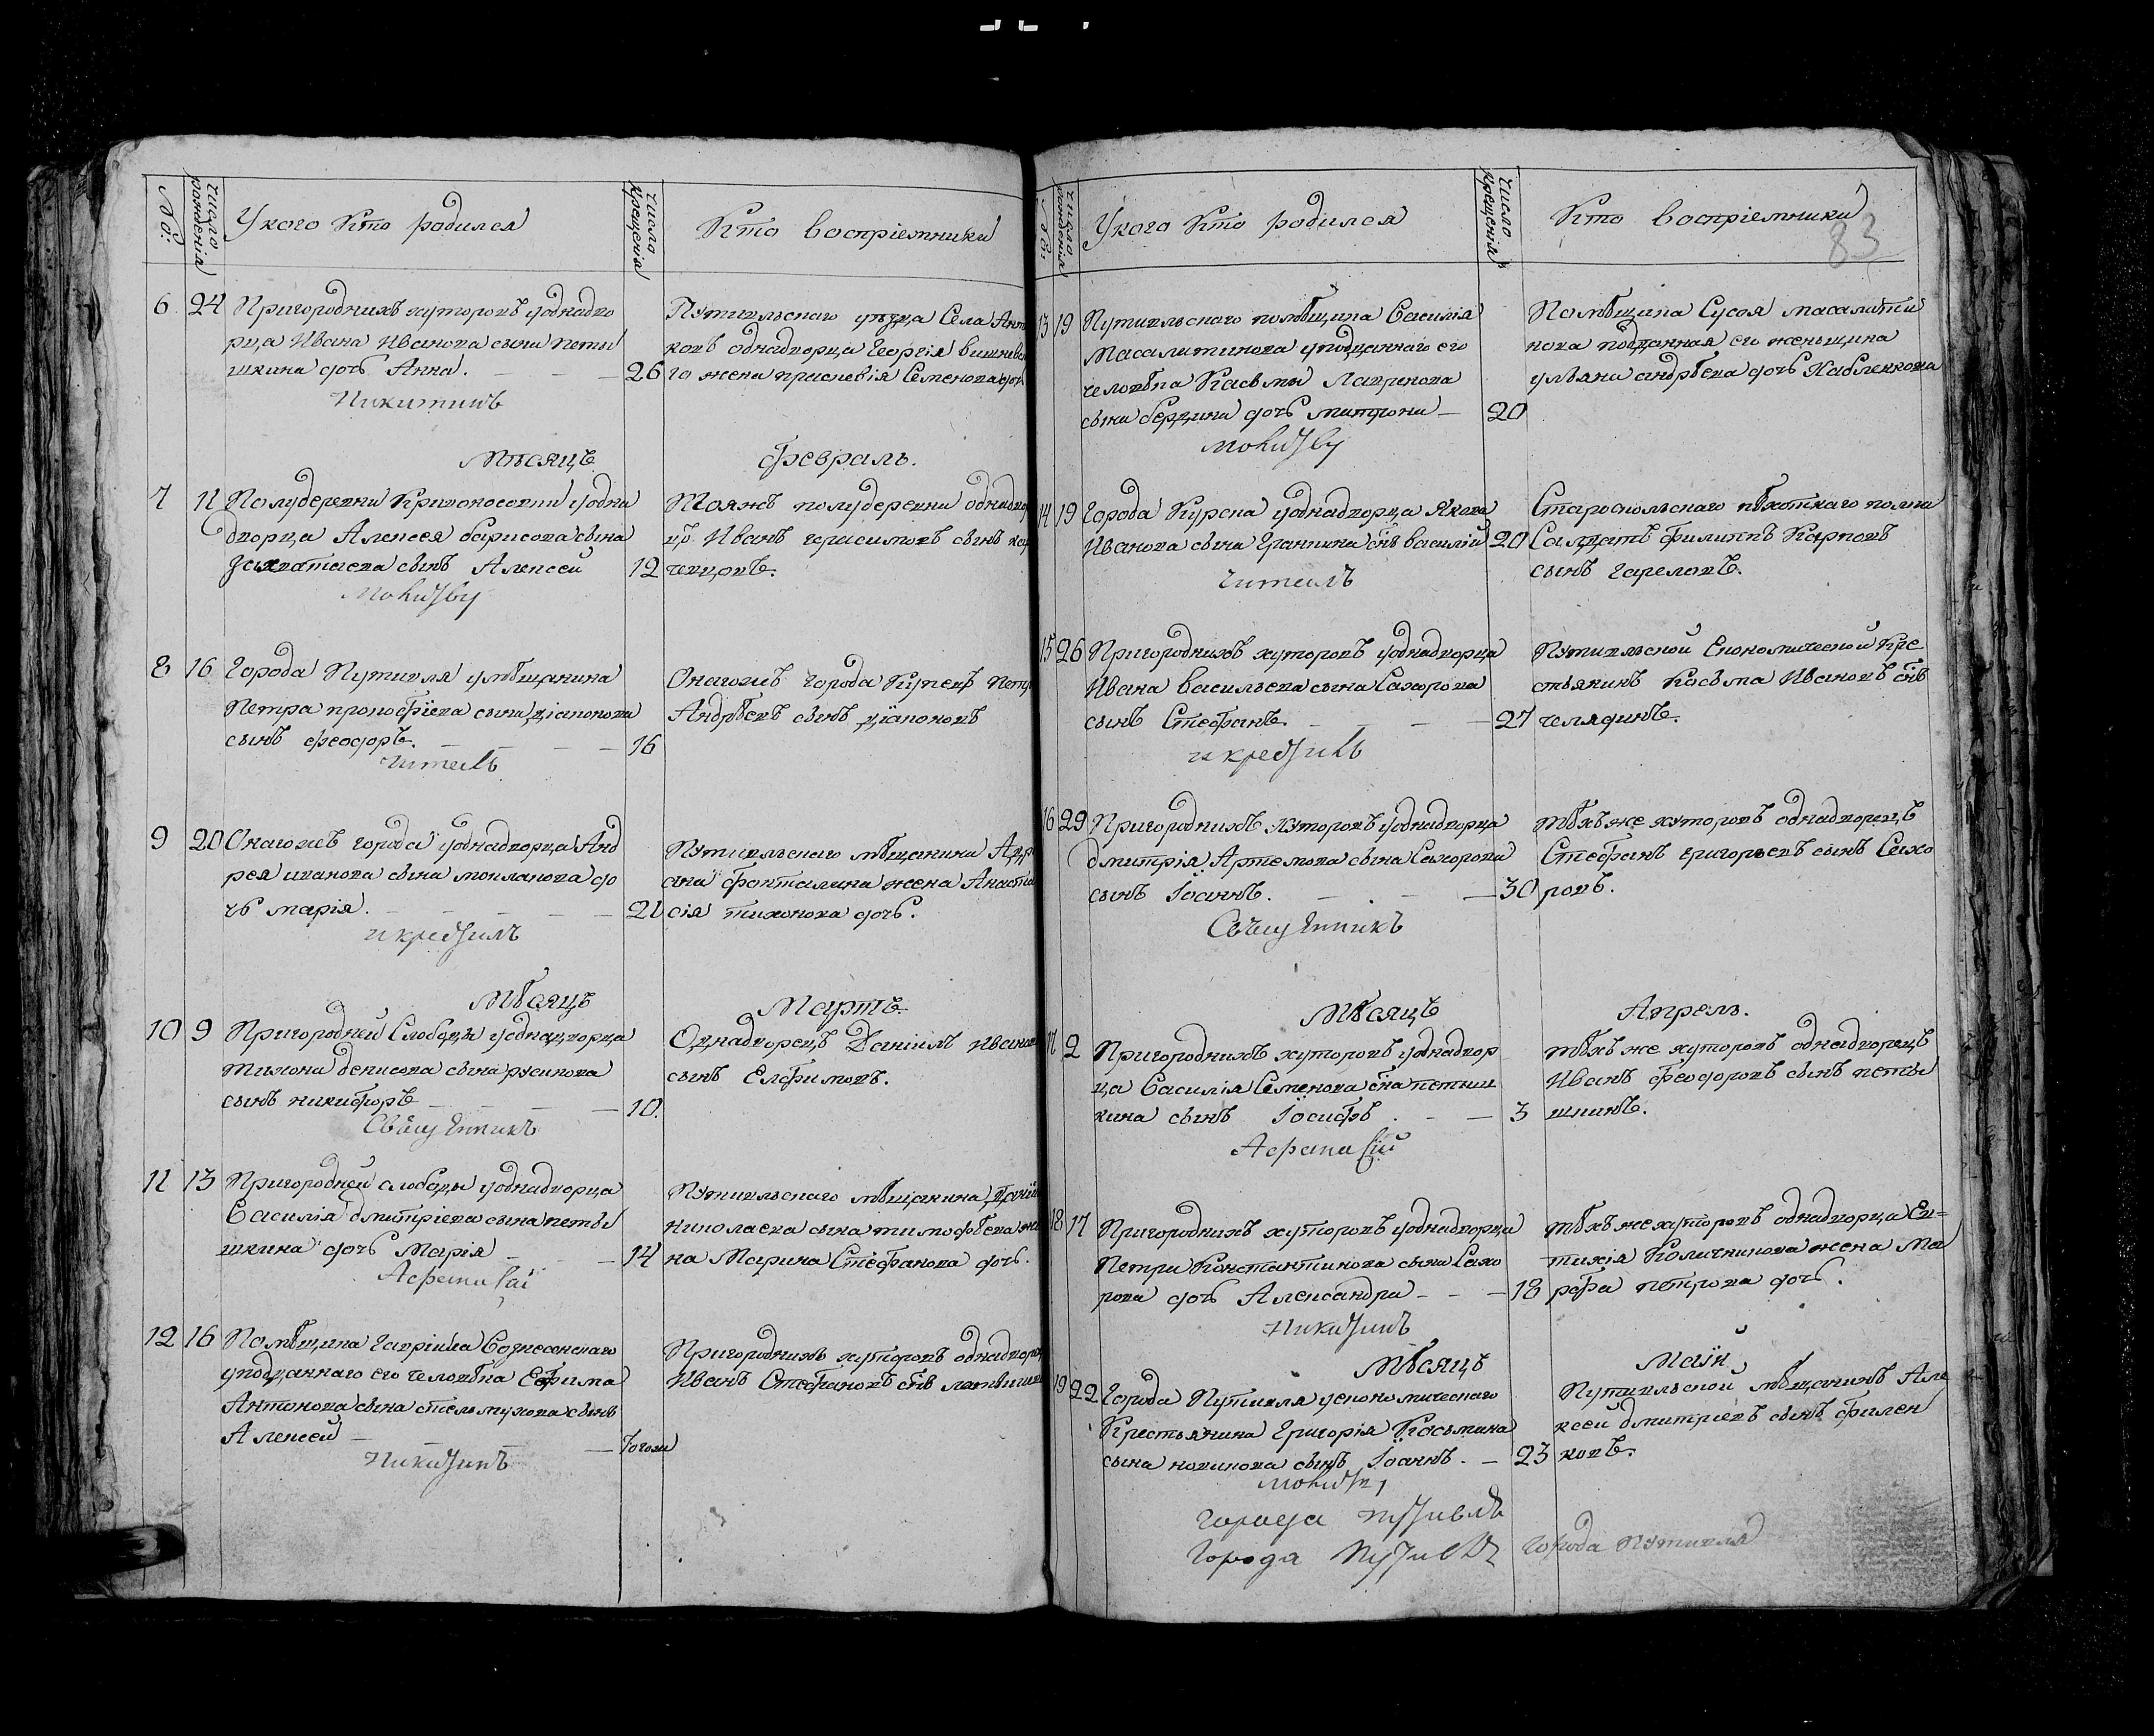 №:
Число рожденія
У кого кто родился
Число крещенія
Кто воспріемники
6 24 Пригороднихъ хуторовъ уоднадво
рца Ивана Иванова сына петы
шкина дочь Анна. 26
Никитинъ
Путивльскаго уезда Села
ковъ однадворца Георгія
го жена праскевія Семенова дочь
Месяцъ Февраль.
7 11 Полудеревни Кривоносовки уодна
дворца Алексея борисова сына
сынъ Алексей 12
Тояжъ полудеревни
цъ Иванъ герасимовъ сынъ
8 16 Города Путивля умѣщанина
Петра прокофіева сына діаконова
сынъ феодоръ. 16
читалъ
Онагожъ города Купецъ
Андрѣевъ сынъ діаконовъ
9 20 Онагожъ города уоднадворца Анд
рея иванова сына моклакова до
чь марія. 21
и крестилъ
Путивльскаго мѣщанина
жена
сія тихонова дочь.
Мѣсяцъ Мартъ
10 9 Пригородней Слободы уоднадворца
тихона денисова сына русинова
сынъ никифоръ 10.
Священникъ
Однадворецъ Даніилъ
сынъ Елфимовъ.
11 13 Пригородней слободы уоднадворца
Василія дмитріева сына петы
шкина дочь Марія 14
Афанасій
Путивльскаго мѣщанина
николаева сына тимофѣева
на Марина Стефанова дочь.
12 16 Помѣщика гавріила Вознесенскаго
уподданнаго его человѣка Ефима
Антонова сына стельмухова сынъ
Алексей
Никитинъ
Пригороднихъ хуторовъ
Иванъ Стефановъ снъ
№:
Число рожденія
У кого кто родился
Число крещенія
Кто воспріемники
83
13 19 Путивльскаго помѣщика Василія
Масалитинова уподданнаго его
человѣка Касьмы Лавренова
сына бердина дочь матрона 20
Помѣщика Сусоя масалити
нова подданная его женьщина
ульяна андрѣева дочь
14 19 Города Курска уоднадворца Якова
Иванова сына Гранкина снъ василій 20
читалъ
Староскольскаго пѣхоткаго полка
Салдатъ филиппъ Карповъ
сынъ гареловъ.
15 26 Пригороднихъ хуторовъ уоднадворца
Ивана васильева сына Сахорова
сынъ Стефанъ. 27
и крестилъ
Путивльской Економической кре
стьянинъ Косьма Ивановъ снъ
челядинъ.
16 29 Пригороднихъ хуторовъ уоднадворца
дмитрія Артемова сына Сахорова
сынъ Іоаннъ. 30
Священникъ
тѣхъ же хуторовъ однадворецъ
Стефанъ григорьевъ сынъ Сахо
ровъ.
Мѣсяцъ Апрель.
17 2 Пригороднихъ хуторовъ уоднадвор
ца Василія Семенова сна петыш
кина сынъ Іосифъ 3
Афанасій
тѣхъ же хуторовъ однадворецъ
Иванъ феодоровъ сынъ петы
шкинъ.
18 17 Пригороднихъ хуторовъ уоднадворца
Петра Константинова сына Сахо
рова дочь Александра 18
Никитинъ
тѣхъ же хуторовъ однадворца Ев=
тихія Количникова жена Ма
рфа петрова дочь.
Мѣсяцъ Маій
19 22 Города Путивля уекономическаго
Крестьянина Григорія Касьмина
сына новикова сынъ Іоаннъ. 23
Путивльской мѣщанинъ Але
ксей дмитріевъ сынъ филен
ковъ.
города путивля
города путивля города путивля